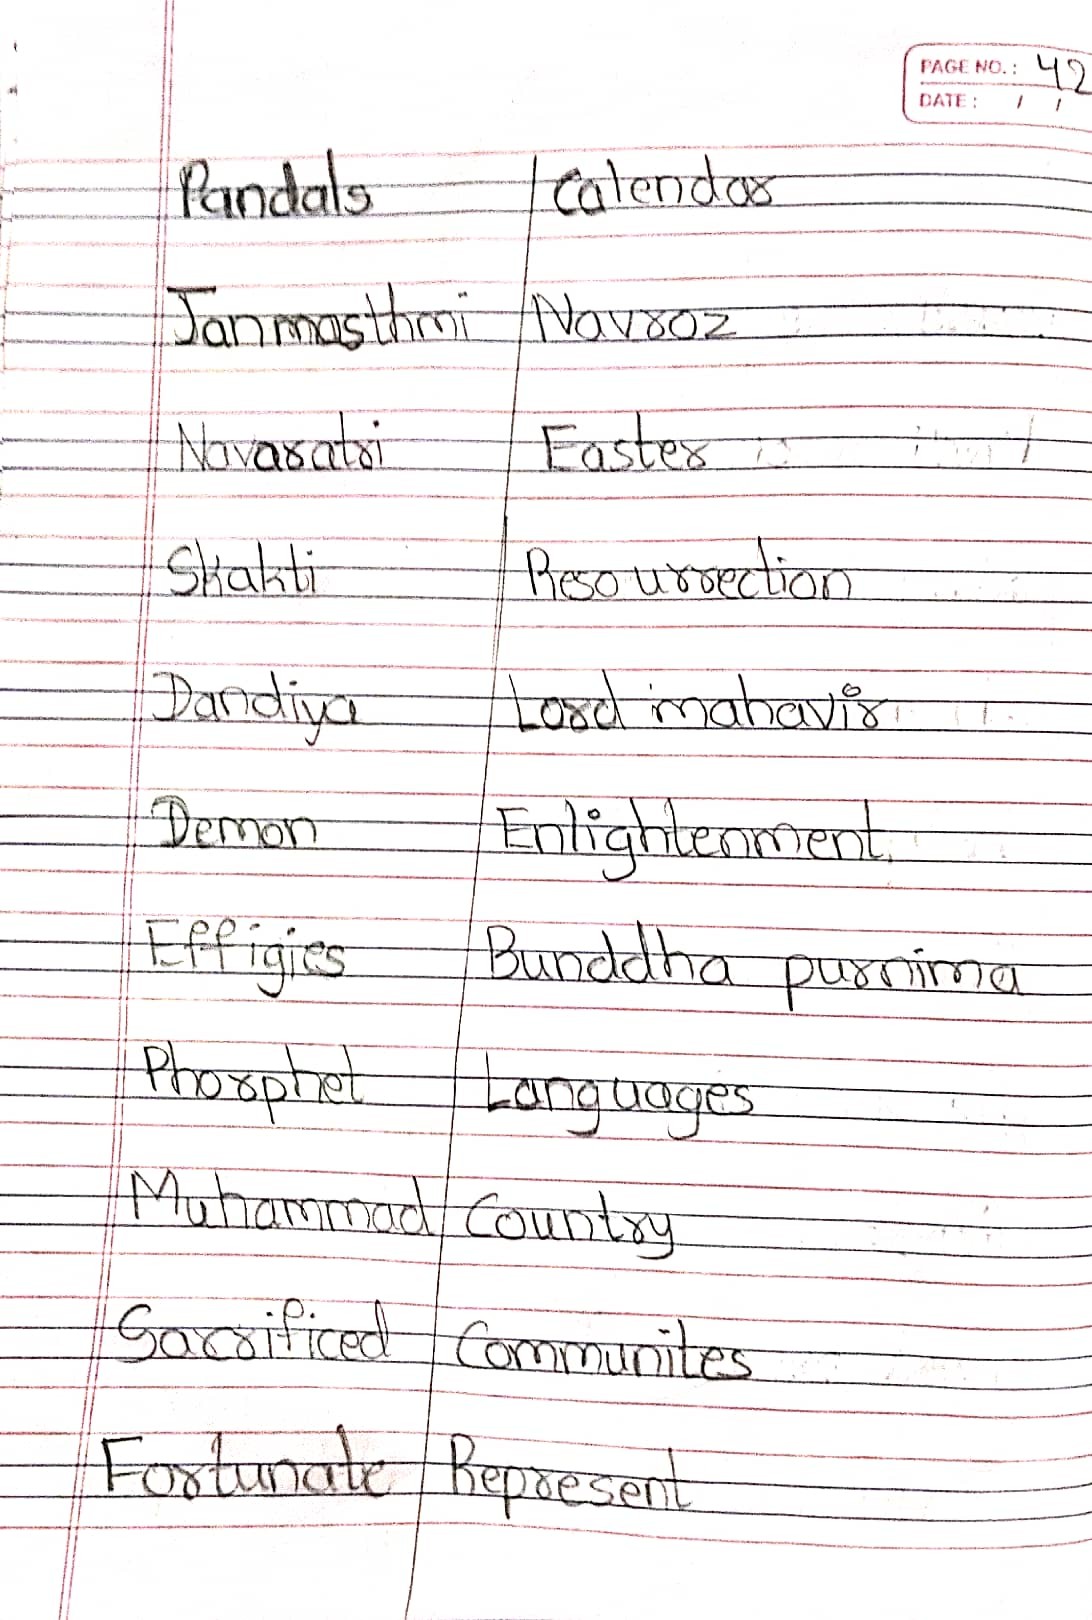 PAGE NO.: 42
DATE: / /
Pandals Calendar
Janmasthmi Navroz
Navaratri Easter
Shakti Resourrection
Dandiya Lord mahavir
Demon Enlightenment
Effigies Bunddha purnima
Phorphet Languages
Muhammad Country
Sacrificed Communites
Fortunate Represent